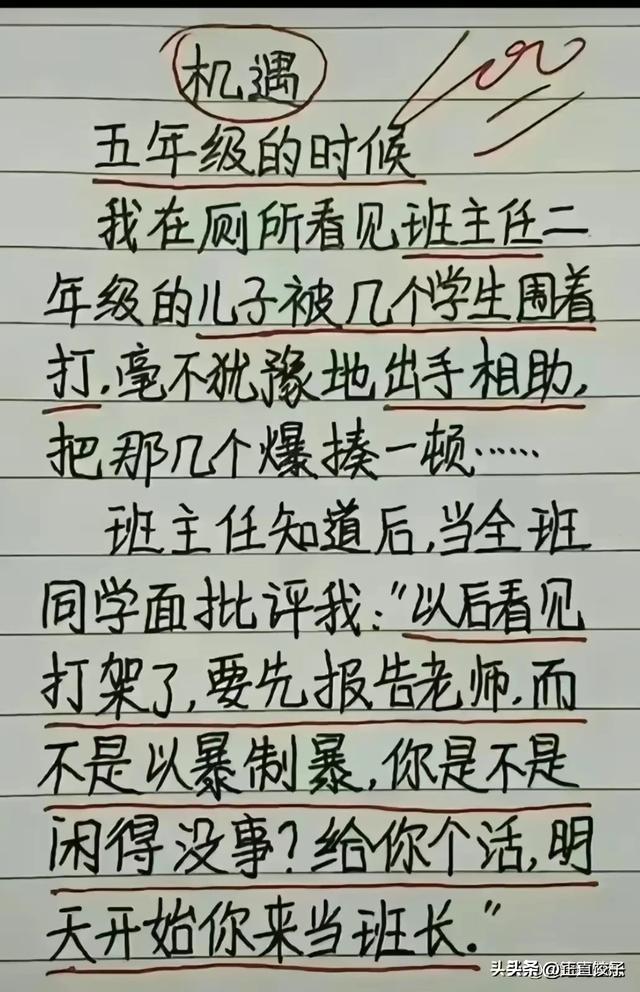 机遇
100
五年级的时候
我在厕所看见班主任二
年级的儿子被几个学生围着
打，毫不犹豫地出手相助，
把那几个爆揍一顿……
班主任知道后，当全班
同学面批评我："以后看见
打架了，要先报告老师，而
不是以暴制暴，你是不是
闲得没事？给你个活，明
天开始你来当班长。"
头条 @正直饺子